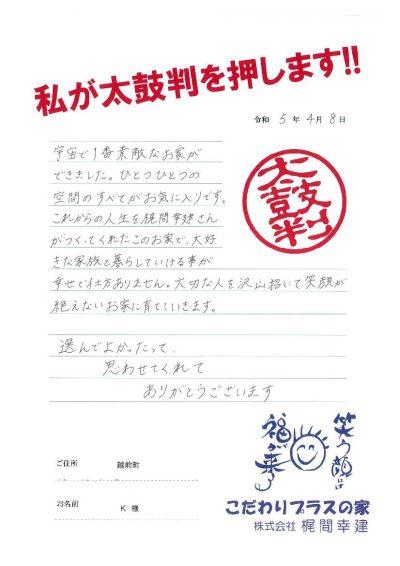 私が太鼓判を押します!!
令和 5 年 4 月 8 日
宇宙で1番素敵なお家が
できました。ひとつひとつの
空間のすべてがお気に入りです。
これからの人生を梶間幸建さん
がつくってくれたこのお家で、大好
きな家族と暮らしていける事が
幸せで仕方ありません。大切な人を沢山招いて笑顔が
絶えないお家に育てていきます。
太鼓判
選んでよかったって、
思わせてくれて
ありがとうございます
笑う顔には
福が来る
ご住所 越前町
お名前 K 様
こだわりプラスの家
株式会社 梶間幸建